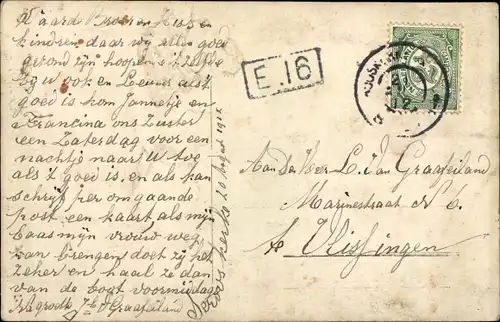 Waard Broer en Zus en
kinderen daar wij allen goed
gezond zijn hoopen het zelfde
bij U ook en Leuven als t
goed is kom Jannetje en
Francina ons Zuster
een Zaterdag voor een
nachtje naar U toe
als t goed is en als kan
schrijf per omgaande
post een kaart als mijn
baas mijn vrouw weg
kan brengen doet zij het
zeker en haal ze dan
van de boot voormiddag
Na groete J v Graafeiland
Serooskerke 20
E.16
Aan De Heer L. Van Graafeiland
Marinestraat N 6.
te Vlissingen